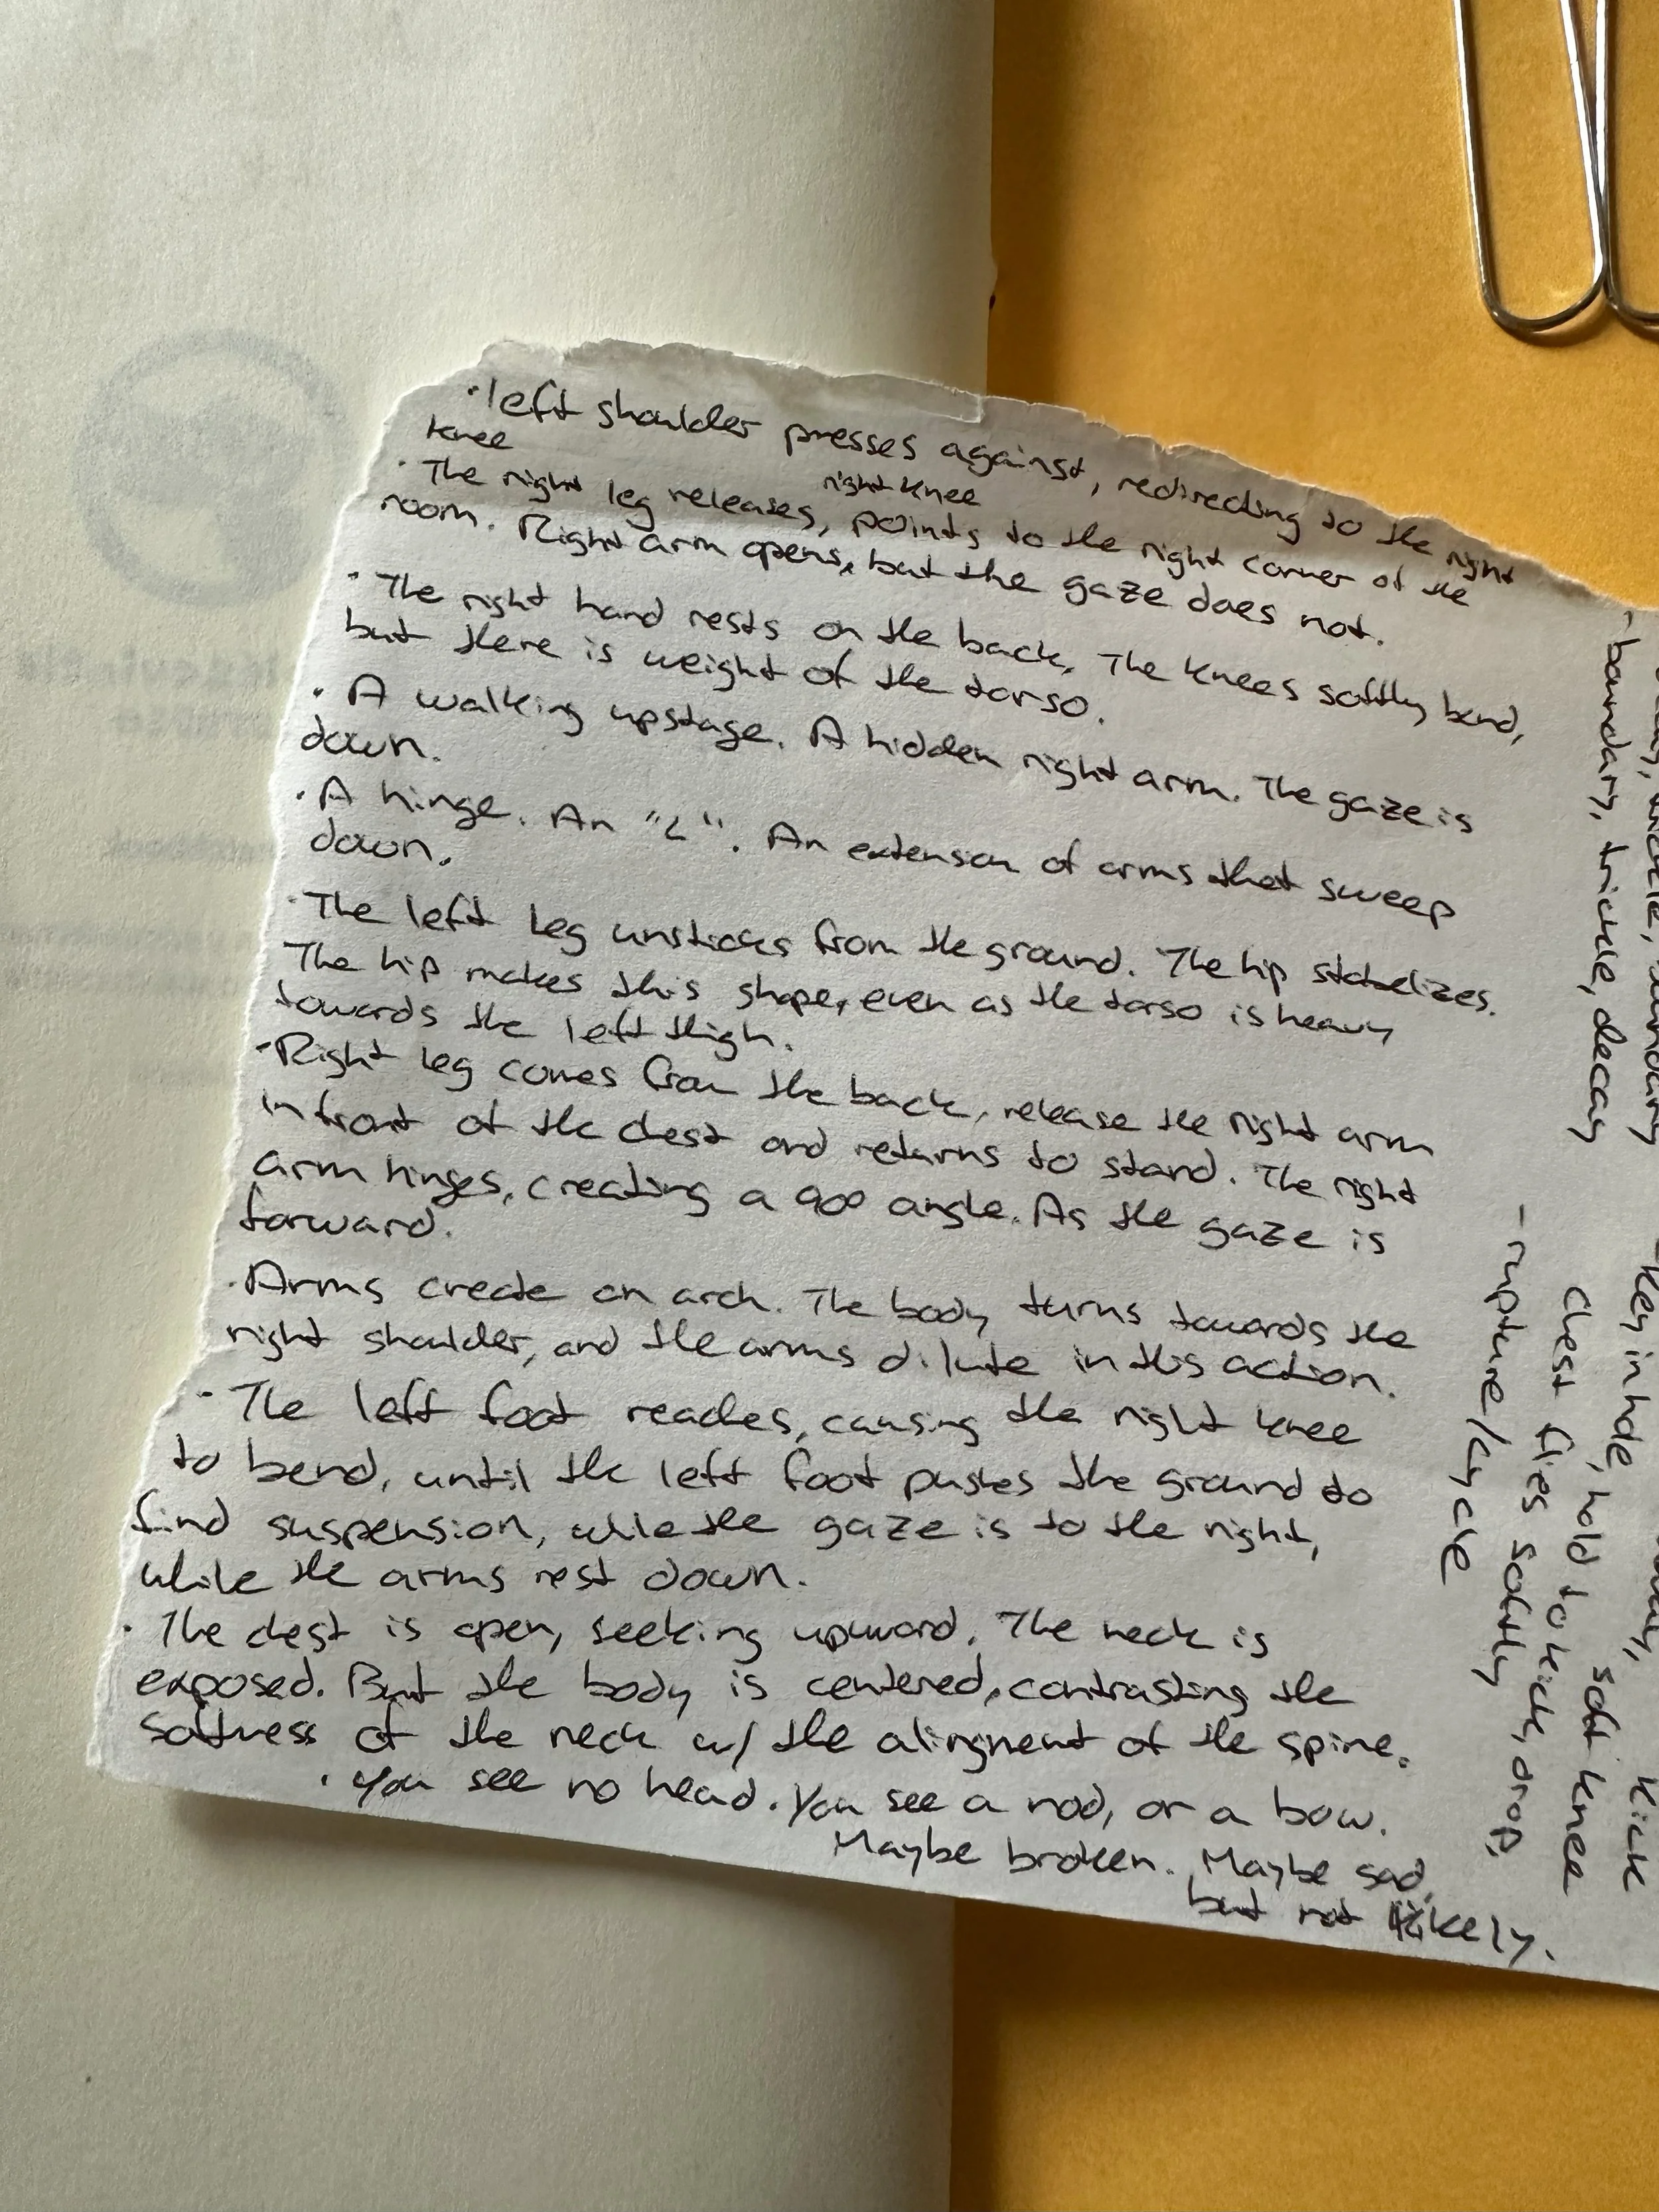 · left shoulder presses against, redirecting to the right
knee
right knee
· The right leg releases, points to the right corner of the
room. Right arm opens, but the gaze does not.
· The right hand rests on the back. The knees softly bend,
but there is weight of the torso.
· A walking upstage. A hidden right arm. The gaze is
down.
· A hinge. An "L". An extenson of arms that sweep
down.
· The left leg unsticks from the ground. The hip stabelizes.
The hip makes this shape, even as the torso is heavy
towards the left thigh.
· Right leg comes from the back, release the right arm
in front of the chest and returns to stand. The right
arm hinges, creating a 90° angle. As the gaze is
forward.
· Arms create an arch. The body turns towards the
right shoulder, and the arms dilute in this action.
· The left foot reaches, causing the right knee
to bend, until the left foot pushes the ground to
find suspension, while the gaze is to the right,
while the arms rest down.
· The chest is open, seeking upward. The neck is
exposed. But the body is centered, contrasting the
softness of the neck w/ the alingment of the spine.
· You see no head. You see a nod, or a bow.
Maybe broken. Maybe sad,
but not likely.
- boundary, trickle, decay
- key in hole, kick
chest, hold to kick, soft knee
flies softly, drop
- rupture/cycle